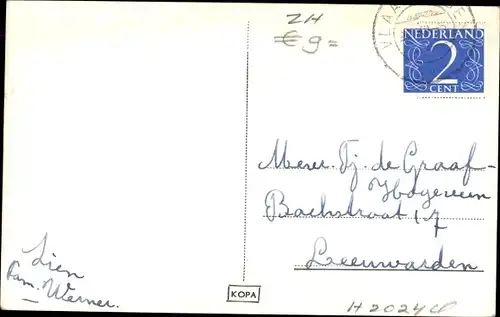 ZH
€ 9=
VLAA
NEDERLAND
2
CENT
Mevr. Tj. de Graaf-
Hogeveen
Bachstraat 17
Leeuwarden
Lien
Fam. Werner.
KOPA
H 2024